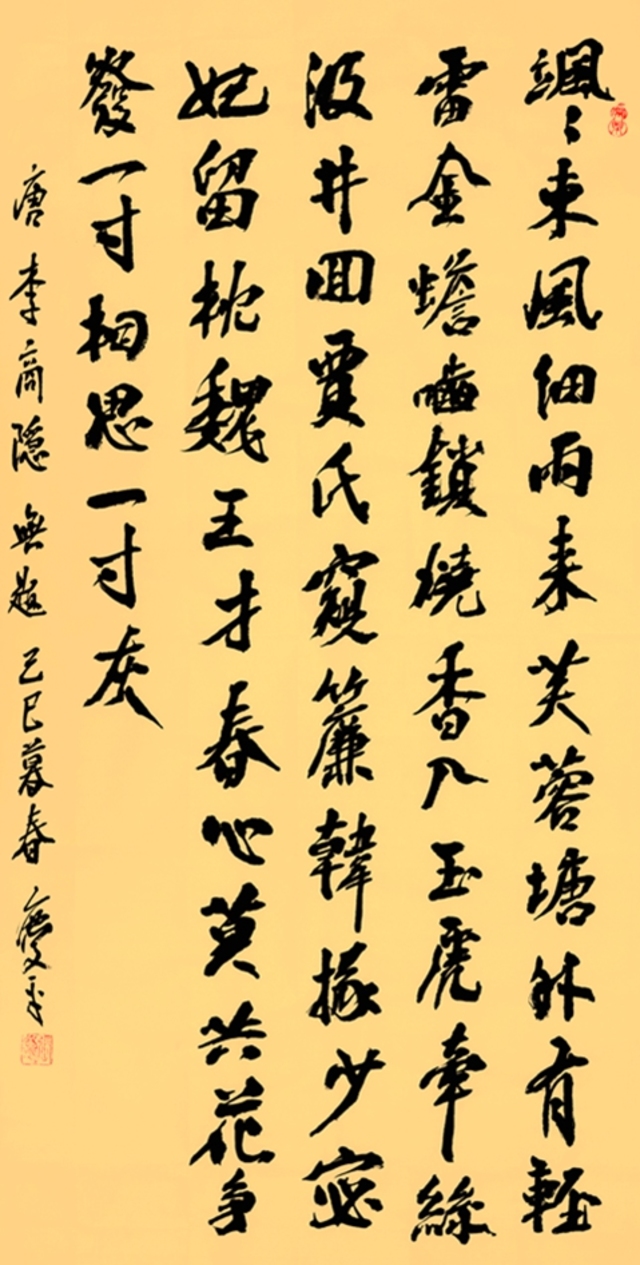 颯〻東風細雨來芙蓉塘外有輕
雷金蟾嚙鎖燒香入玉虎牽絲
汲井囬賈氏窺簾韓掾少宓
妃留枕魏王才春心莫共花爭
發一寸相思一寸灰
唐李商隐無題己巳暮春